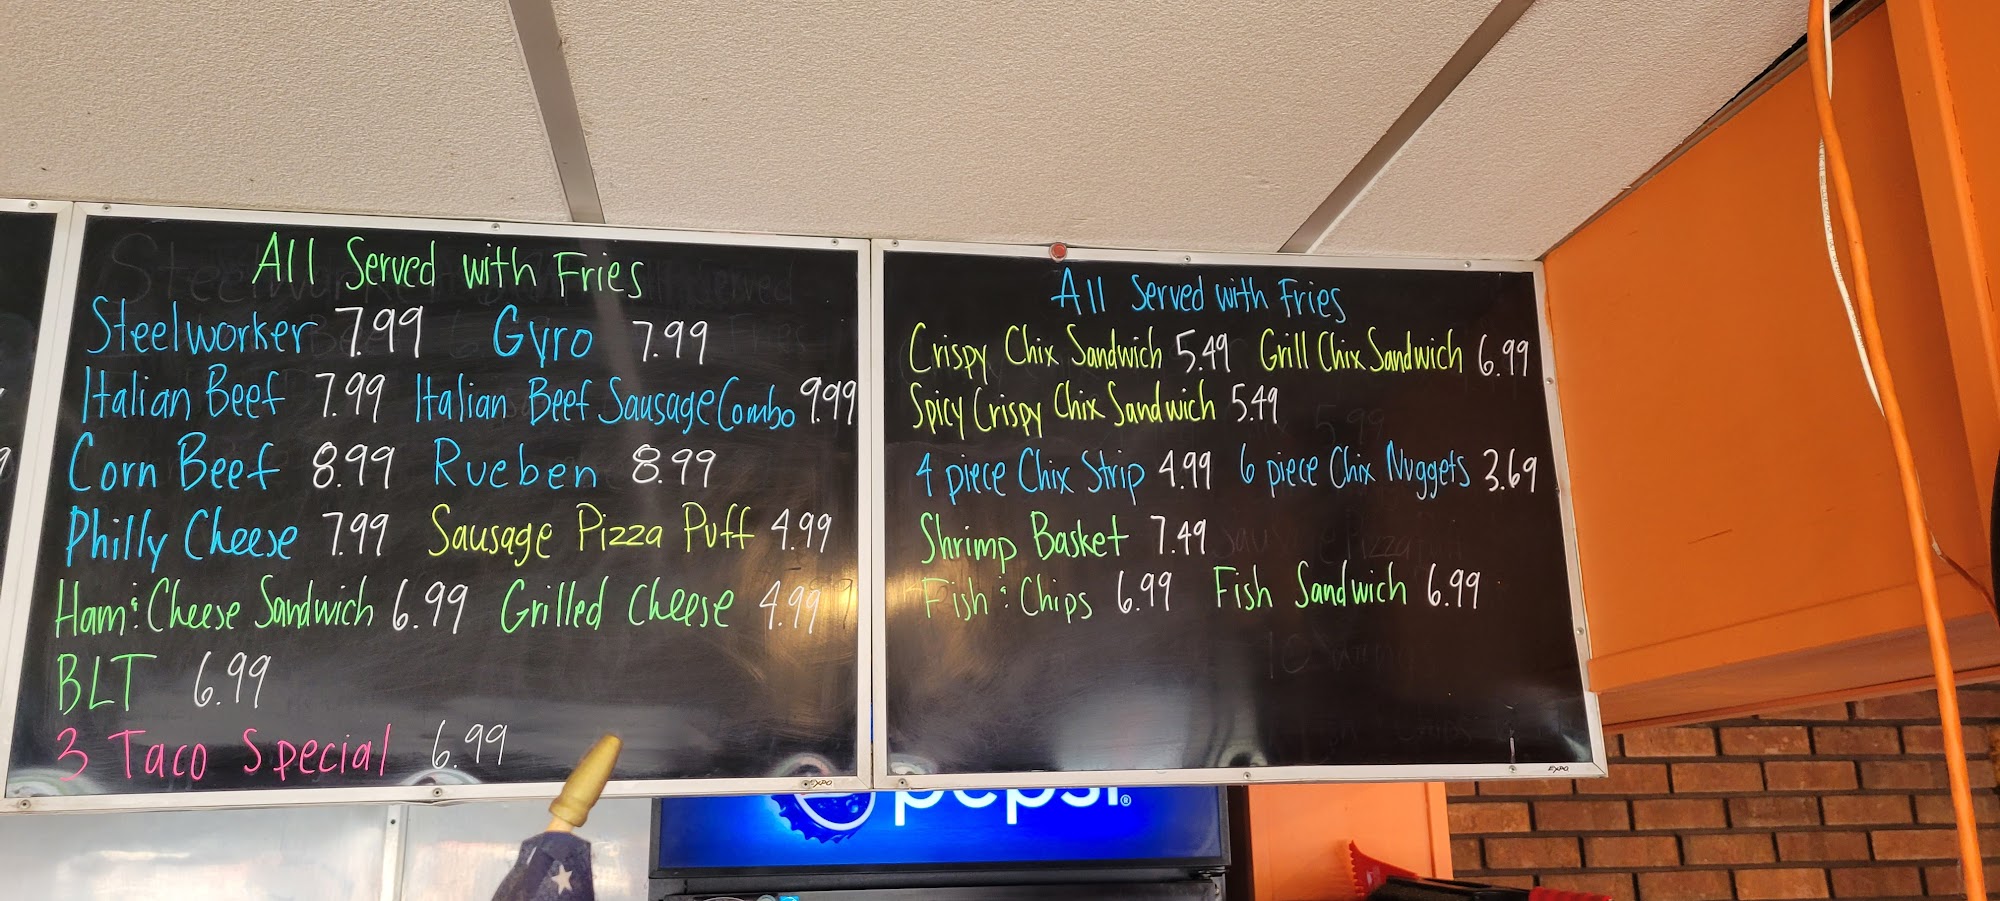 All Served with Fries
Steelworker 7.99 Gyro 7.99
Italian Beef 7.99 Italian Beef Sausage Combo 9.99
Corn Beef 8.99 Rueben 8.99
Philly Cheese 7.99 Sausage Pizza Puff 4.99
Ham & Cheese Sandwich 6.99 Grilled Cheese 4.99
BLT 6.99
3 Taco Special 6.99
EXPO
All Served with Fries
Crispy Chix Sandwich 5.49 Grill Chix Sandwich 6.99
Spicy Crispy Chix Sandwich 5.49
4 piece Chix Strip 4.99 6 piece Chix Nuggets 3.69
Shrimp Basket 7.49
Fish & Chips 6.99 Fish Sandwich 6.99
EXPO
pepsi®